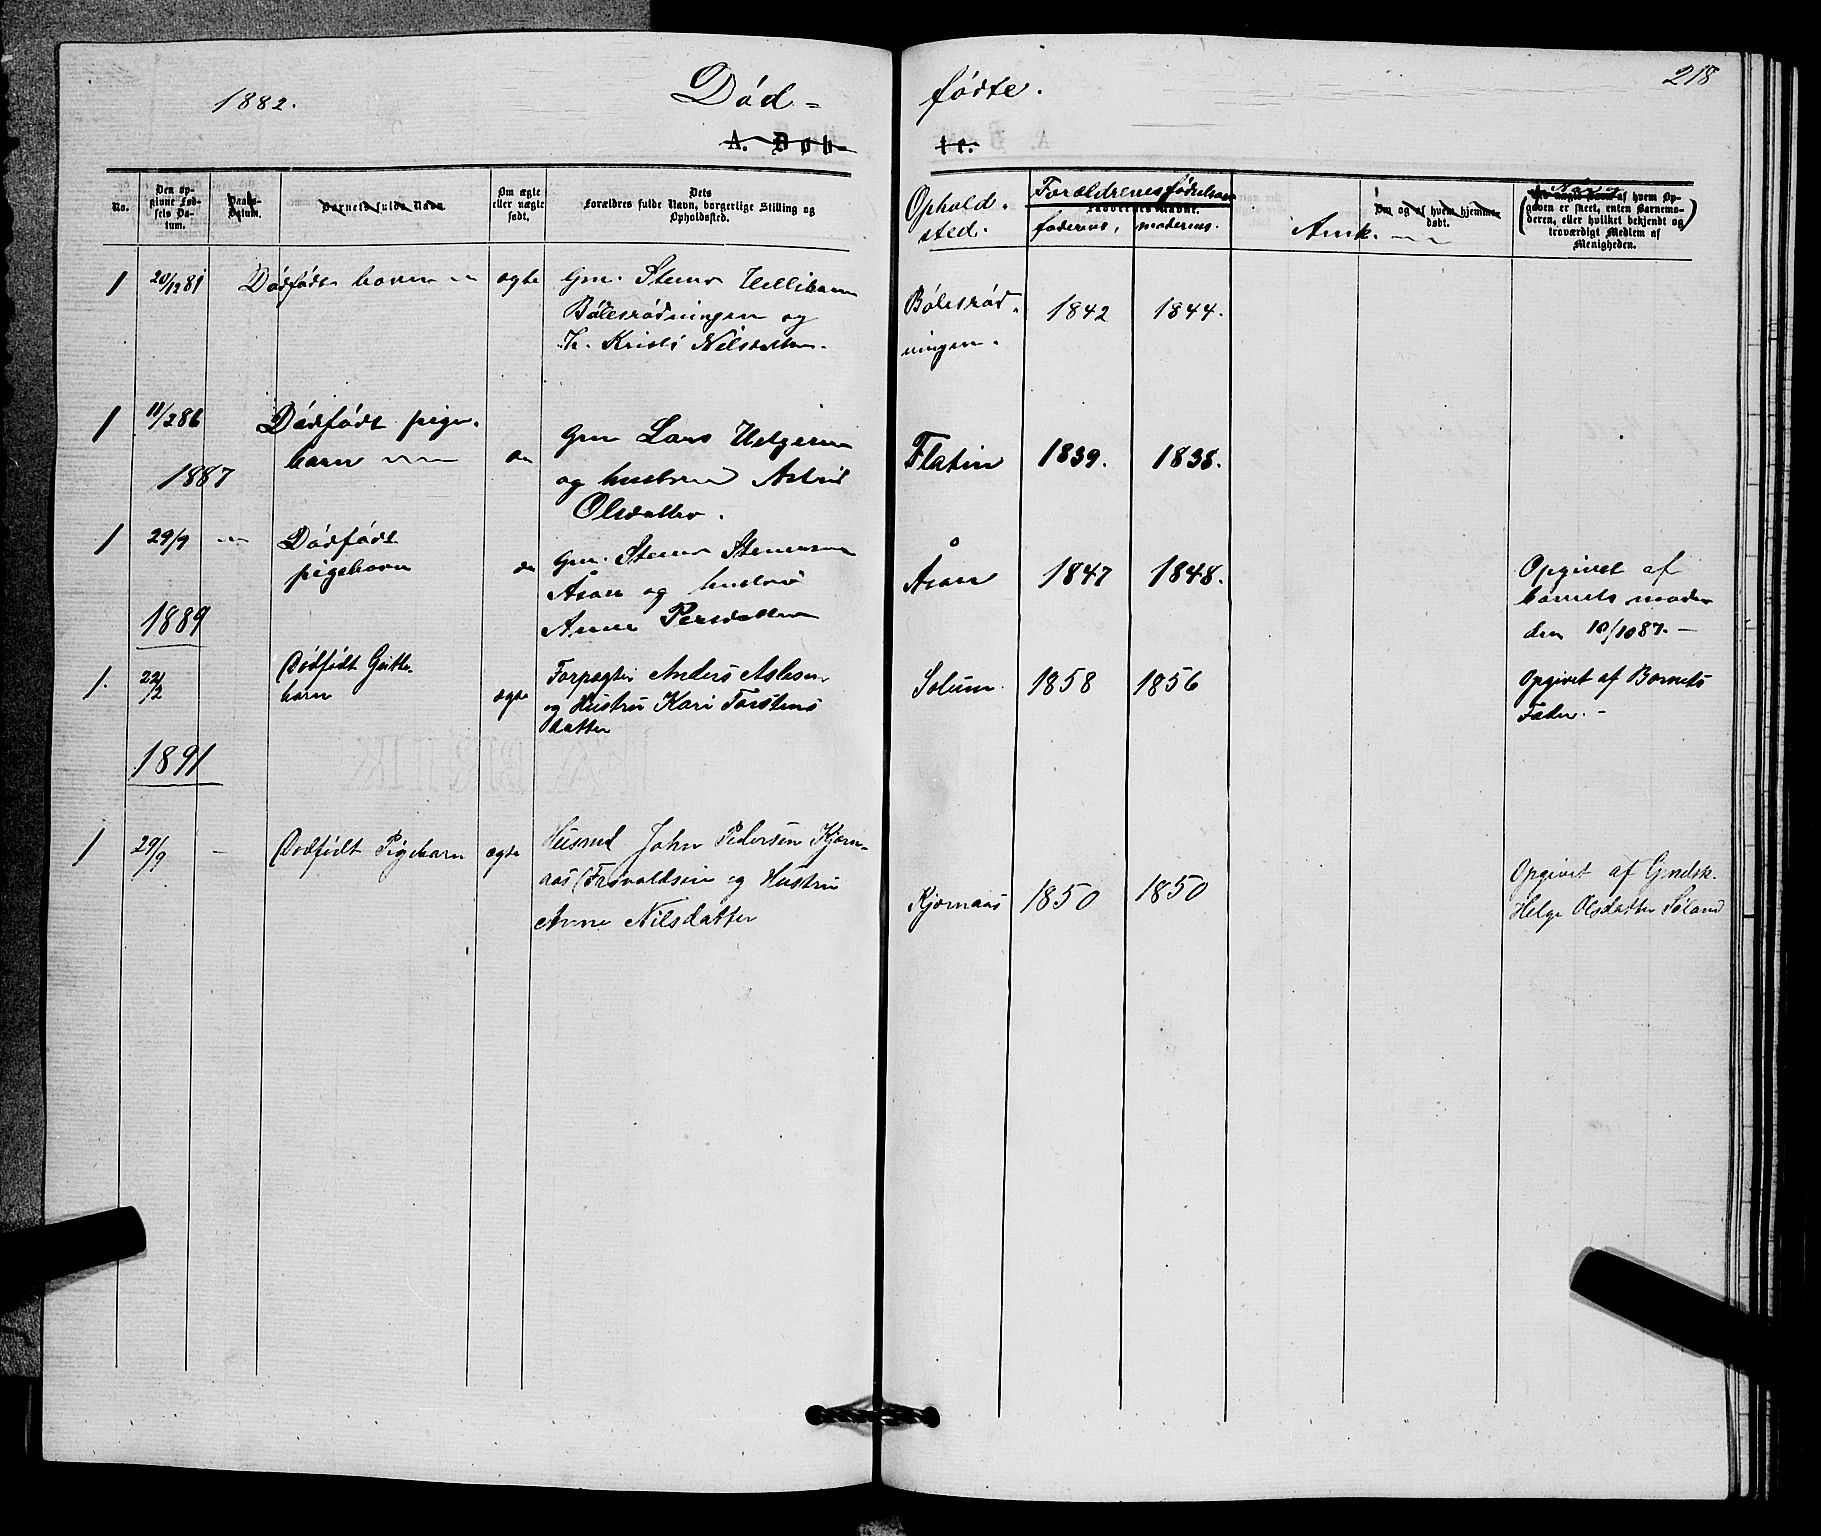 1882.
Død-
fødte.
218
A. Døb-
te.
No.
Den op-
givne Fød-
sels Da-
tum.
Daabs-
Datum.
Barnets fulde Navn.
Om ægte
eller uægte
født.
Dets
Forældres fulde Navn, borgerlige Stilling og
Opholdssted.
Ophold-
sted.
Forældrenes fødselsaar
Faddernes Navne.
faderens,
moderens.
Anm.
Om og af hvem hjemme-
døbt.
Naar
af hvem Op-
gaven er skeet, enten Barnemo-
deren, eller hvilket bekjendt og
troværdigt Medlem af
Menigheden.
1
20/12 81
Dødfødt barn
ægte
Gm. Stener
Bølesrødningen og
h. Kristi Nilsdatter.
Bølesrød-
ningen.
1842
1844.
1
11/2 86
Dødfødt pige-
barn
do
Gm Lars Helgesen
og hustru Astrid
Olsdatter.
Flatin
1839.
1838.
1887
1
29/9
Dødfødt
pigebarn
do
Gm. Stener Stenersen
Åsan og hustru
Anne Persdatter
Åsan
1847
1848.
Opgivet af
barnets moder
den 10/10 87.
1889
1.
22/2
Dødfødt Gutte-
barn
ægte
Forpagter Anders Aslesen
og Hustru Kari Torstens
datter
Solum
1858
1856
Opgivet af Barnets
Fader.
1891
1
29/9
Dødfødt Pigebarn
ægte
Husmd John Pedersen Kjørn-
aas og Hustru
Anne Nilsdatter
Kjørnaas
1850
1850
Opgivet af Gmdsk.
Helge Olsdatter Søland